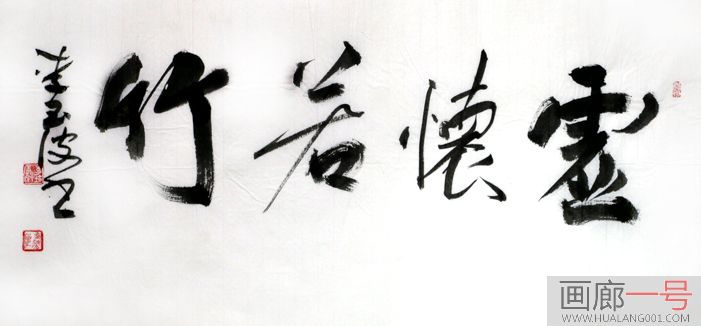 虚懷若竹
李玉波书
画廊一号
WWW.HUALANG001.COM